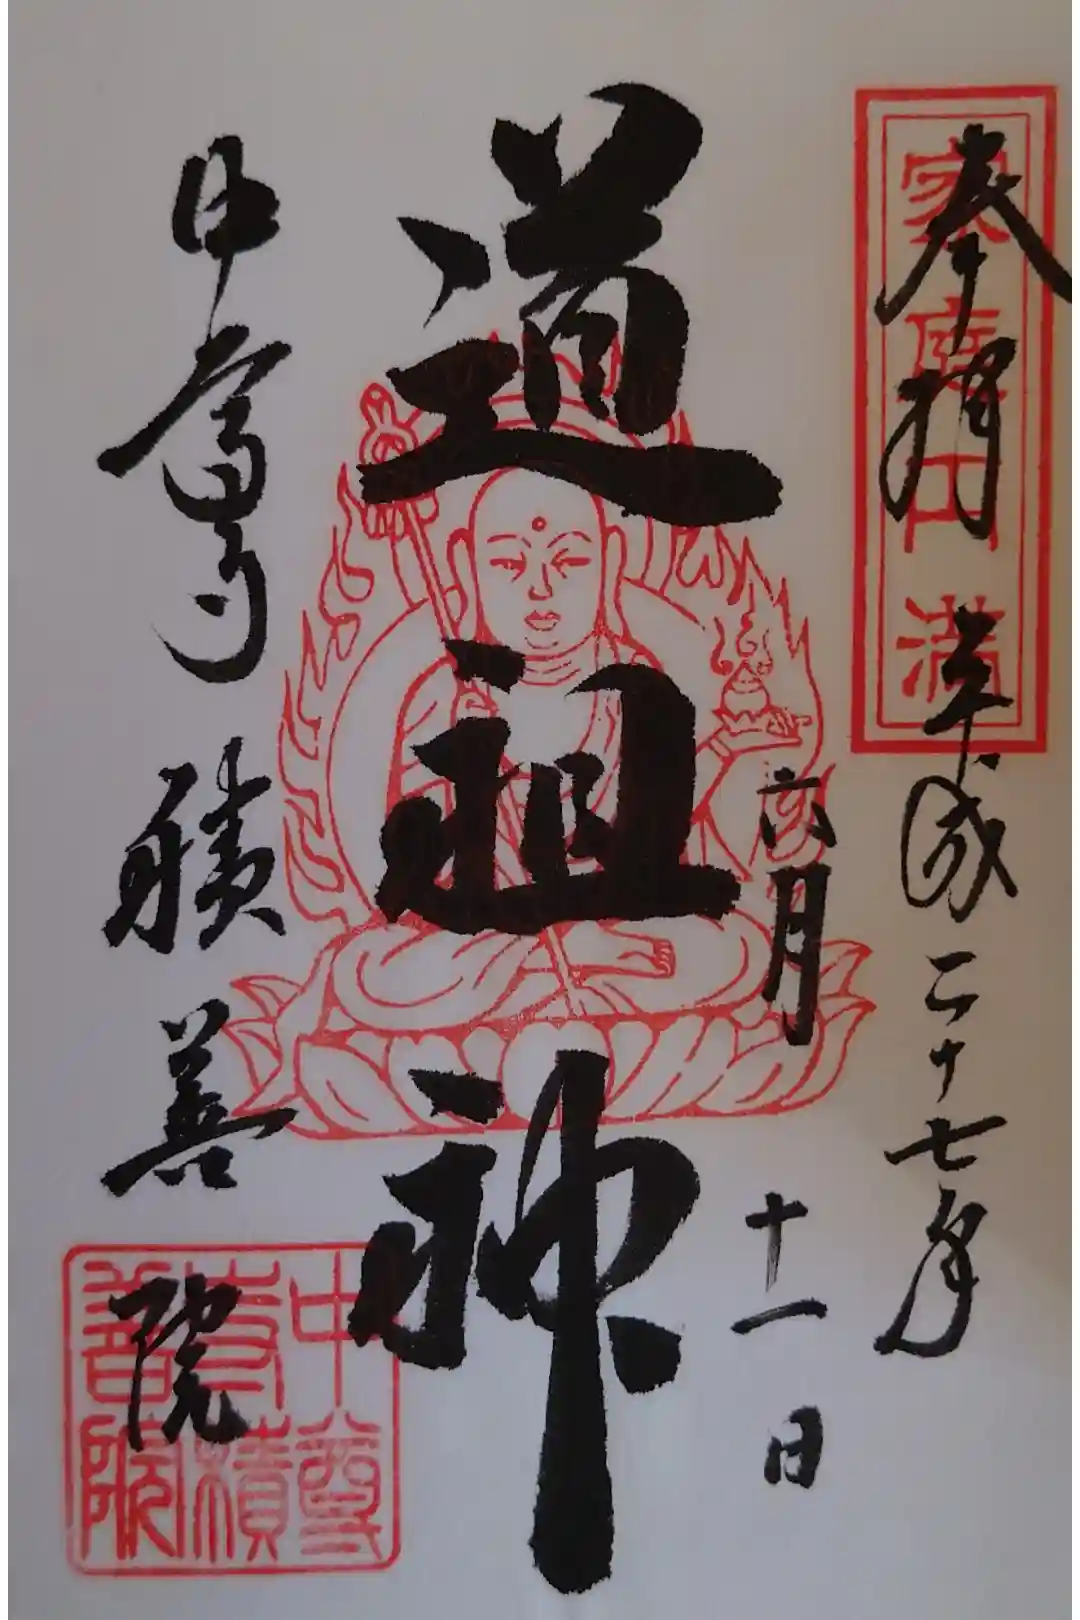 奉拝 平成二十七年
六月十一日
道祖神
中尊寺 積善院
家庭円満
中尊
寺積
善院